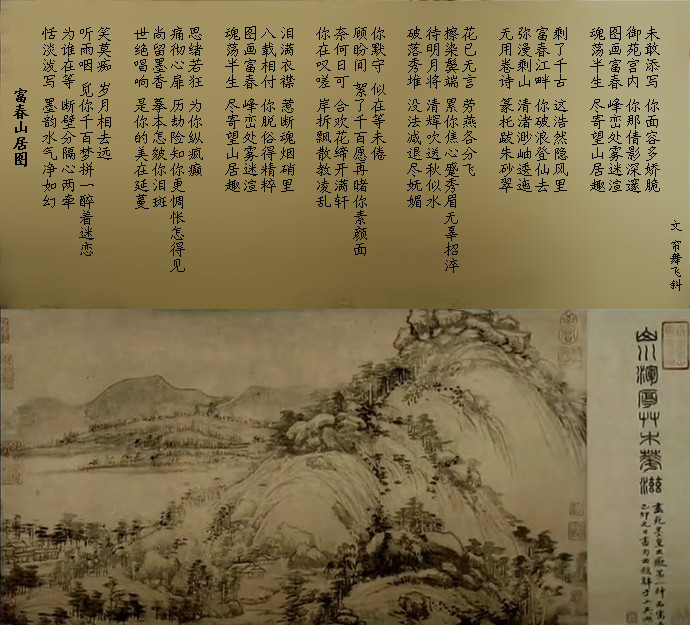 富春山居图
恬淡泼写 墨韵水气净如幻
为谁在等 断壁分隔心两牵
听雨咽 觅你千百梦拼一醉着迷恋
笑莫痴 岁月相去远
世绝唱响 是你的美在延蔓
尚留墨香 摹本怎皴你泪斑
痛彻心扉 历劫险知你更惆怅怎得见
思绪若狂 为你纵疯癫
魂荡半生 尽寄望山居趣
图画富春 峰峦处雾迷渲
八载相付 你脱俗得精粹
泪满衣襟 惹断魂烟硝里
你在叹嗟 岸拆飘散教凌乱
奈何日可 合欢花缔开满轩
顾盼间 絮了千百愿再睹你素颜面
你默守 似在等未倦
破落秀堆 没法减退尽妩媚
待明月将 清辉吹送秋似水
擦染鬓端 累你焦心蹙秀眉无辜招淬
花已无言 劳燕各分飞
无用卷诗 篆托跋朱砂翠
弥漫剩山 清渚渺岫逶迤
富春江畔 你破浪登仙去
剩了千古 这浩然隐风里
魂荡半生 尽寄望山居趣
图画富春 峰峦处雾迷渲
御苑宫内 你那倩影深邃
未敢添写 你面容多娇脆
文 帘舞飞斜
山川浑厚艸木华滋